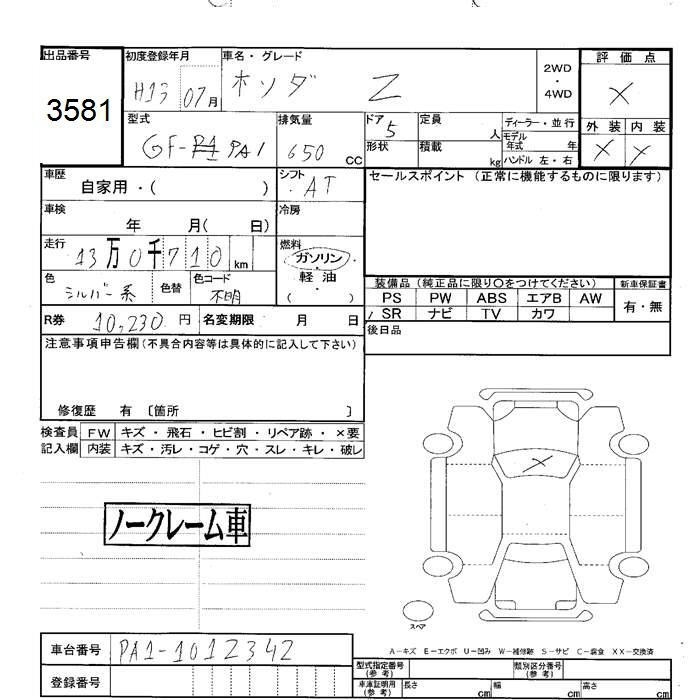 出品番号 初度登録年月 車名・グレード 評価点
3581 H13 07月 ホンダ Z 2WD・4WD X
型式 排気量 ドア 5 定員 人 ディーラー・並行 外装 内装
GF-PA1 650 CC 形状 積載 kg モデル年式 年 X X
ハンドル 左・右
車歴 自家用・( ) シフト ・AT セールスポイント (正常に機能するものに限ります)
車検 年 月( 日) 冷房
走行 13万0千710km 燃料 ガソリン・軽油・( )
色 シルバー系 色替 色コード 不明
装備品 (純正品に限り○をつけてください) 新車保証書
PS PW ABS エアB AW 有・無
/SR ナビ TV カワ
R券 10,230円 名変期限 月 日 後日品
注意事項申告欄(不具合内容等は具体的に記入して下さい)
修復歴 有 〔箇所 〕
検査員 FW キズ・飛石・ヒビ割・リペア跡・×要
記入欄 内装 キズ・汚レ・コゲ・穴・スレ・キレ・破レ
X
ノークレーム車
スペア
A-キズ E-エクボ U-凹み W-補修跡 S-サビ C-腐食 XX-交換済
車台番号 PA1-1012342
型式指定番号(参考) 類別区分番号(参考)
登録番号 車庫証明用(参考) 長さ cm 幅 cm 高さ cm